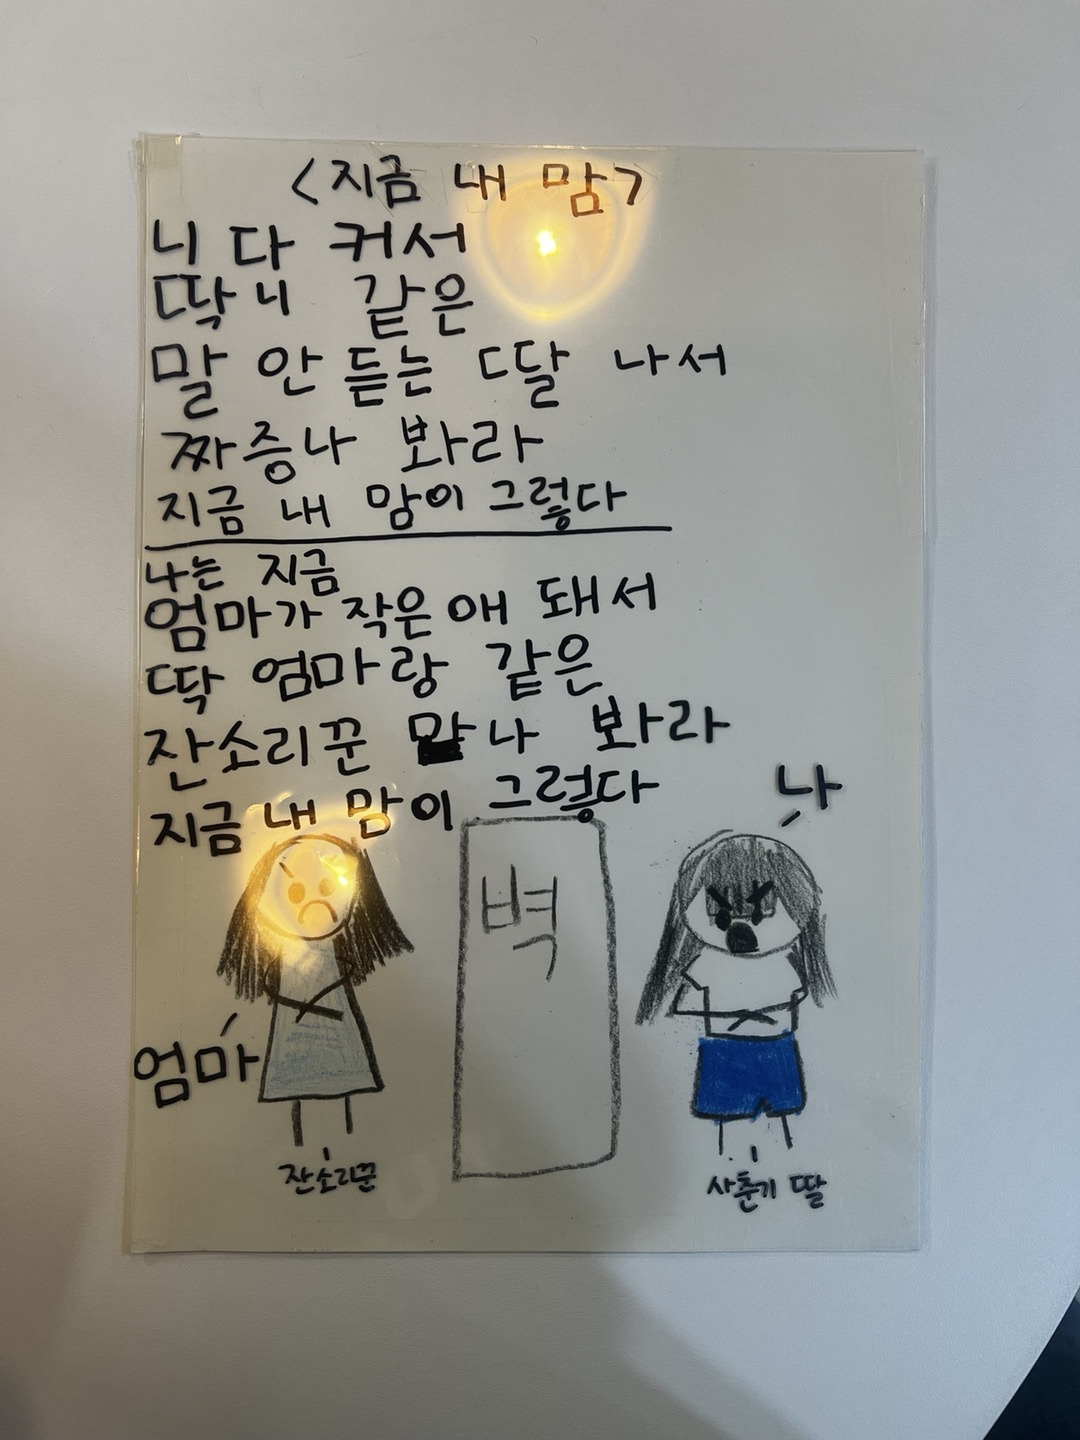 <지금 내 맘>
니 다 커서
딱 니 같은
말 안 듣는 딸 나서
짜증나 봐라
지금 내 맘이 그렇다
나는 지금
엄마가 작은 애 돼서
딱 엄마랑 같은
잔소리꾼 만나 봐라
지금 내 맘이 그렇다
나
벽
엄마
잔소리꾼
사춘기 딸